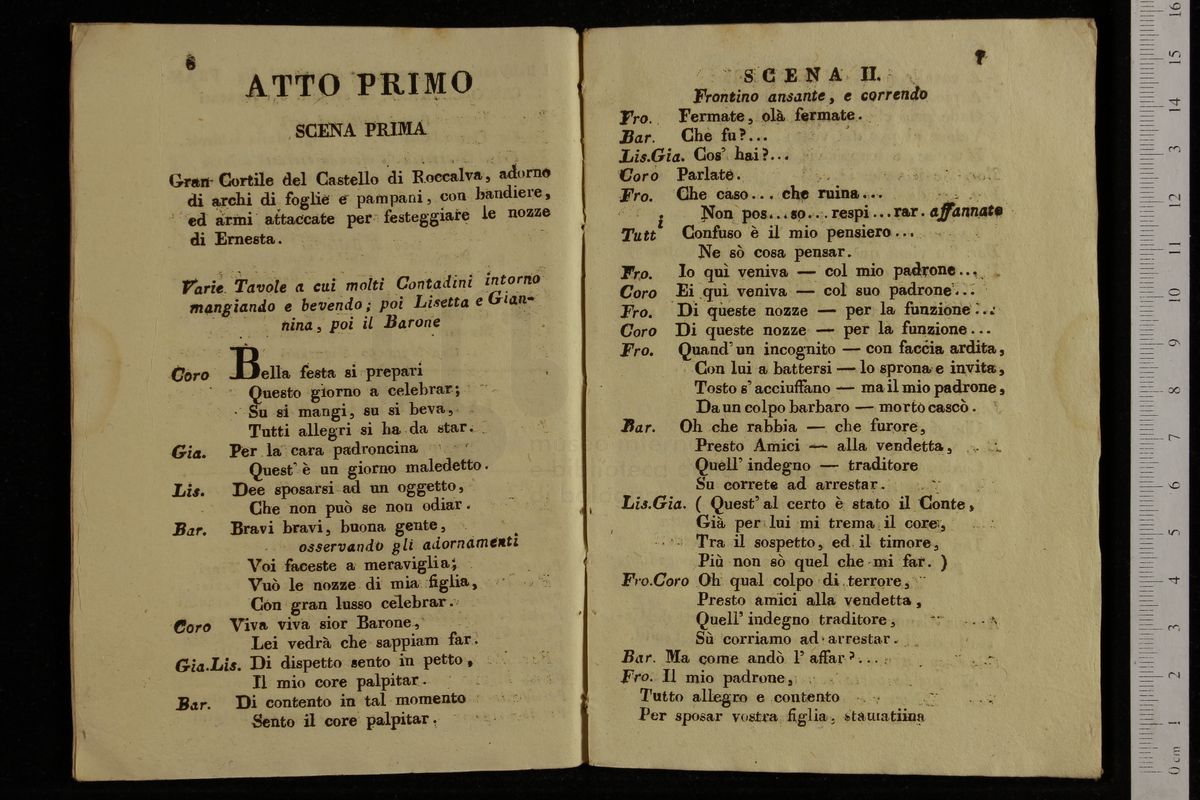 6
ATTO PRIMO
SCENA PRIMA
Gran Cortile del Castello di Roccalva, adorno
di archi di foglie e pampani, con bandiere,
ed armi attaccate per festeggiare le nozze
di Ernesta.
Varie Tavole a cui molti Contadini intorno
mangiando e bevendo; poi Lisetta e Gian-
nina, poi il Barone
Coro Bella festa si prepari
Questo giorno a celebrar;
Su si mangi, su si beva,
Tutti allegri si ha da star.
Gia. Per la cara padroncina
Quest' è un giorno maledetto.
Lis. Dee sposarsi ad un oggetto,
Che non può se non odiar.
Bar. Bravi bravi, buona gente,
osservando gli adornamenti
Voi faceste a meraviglia;
Vuò le nozze di mia figlia,
Con gran lusso celebrar.
Coro Viva viva sior Barone,
Lei vedrà che sappiam far.
Gia.Lis. Di dispetto sento in petto,
Il mio core palpitar.
Bar. Di contento in tal momento
Sento il core palpitar.
7
SCENA II.
Frontino ansante, e correndo
Fro. Fermate, olà fermate.
Bar. Che fu?...
Lis.Gia. Cos' hai?...
Coro Parlate.
Fro. Che caso... che ruina...
Non pos...so...respi...rar. affannato
Tutti Confuso è il mio pensiero...
Ne sò cosa pensar.
Fro. Io quì veniva — col mio padrone...
Coro Ei quì veniva — col suo padrone...
Fro. Di queste nozze — per la funzione...
Coro Di queste nozze — per la funzione...
Fro. Quand' un incognito — con faccia ardita,
Con lui a battersi — lo sprona e invita,
Tosto s' acciuffano — ma il mio padrone,
Da un colpo barbaro — morto cascò.
Bar. Oh che rabbia — che furore,
Presto Amici — alla vendetta,
Quell' indegno — traditore
Su correte ad arrestar.
Lis.Gia. ( Quest' al certo è stato il Conte,
Già per lui mi trema il core,
Tra il sospetto, ed il timore,
Più non sò quel che mi far. )
Fro.Coro Oh qual colpo di terrore,
Presto amici alla vendetta,
Quell' indegno traditore,
Sù corriamo ad arrestar.
Bar. Ma come andò l' affar?...
Fro. Il mio padrone,
Tutto allegro e contento
Per sposar vostra figlia, stamattina